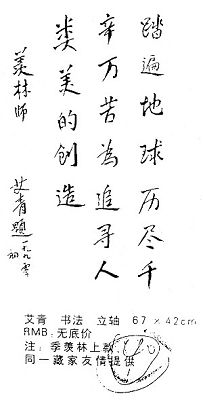 踏遍地球历尽千
辛万苦為追寻人
类美的创造
美林师
艾青题
艾青 书法 立轴 67×42cm
RMB:无底价
注:季羡林上款
同一藏家友情提供